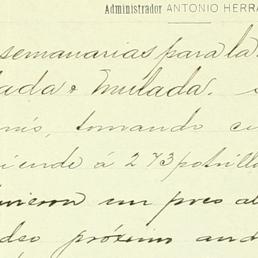 Administrador ANTONIO HERRA
semanarias para la
lada & mulada.
tomando
iende á 273 potrill
vieron un pres al
deo próximo and